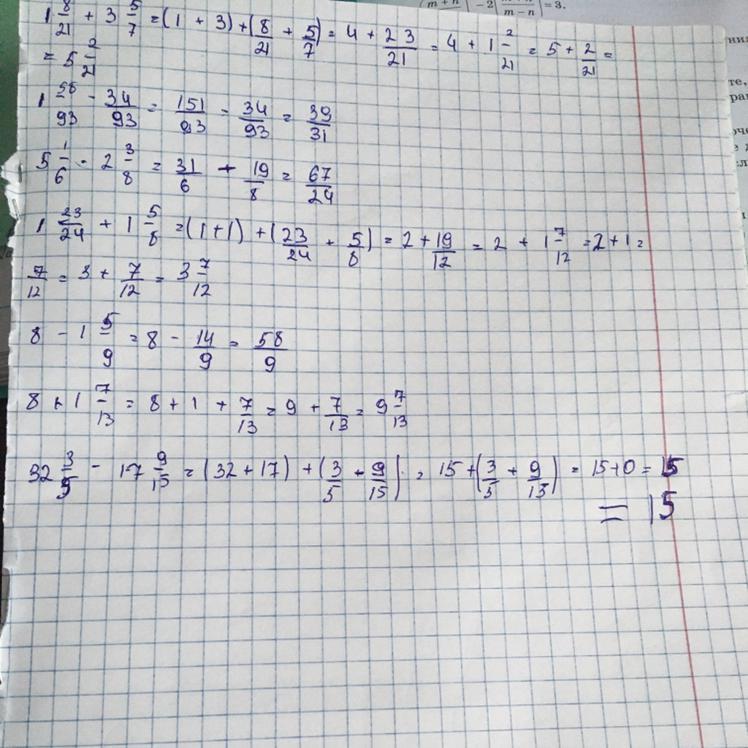 (m+n) -2 m-n = 3.
1 8/21 + 3 5/7 = (1 + 3) + (8/21 + 5/7) = 4 + 23/21 = 4 + 1 2/21 = 5 + 2/21 =
= 5 2/21
1 58/93 - 34/93 = 151/93 - 34/93 = 39/31
5 1/6 - 2 3/8 = 31/6 + 19/8 = 67/24
1 23/24 + 1 5/8 = (1+1) + (23/24 + 5/8) = 2 + 19/12 = 2 + 1 7/12 = 2+1 =
7/12 = 3 + 7/12 = 3 7/12
8 - 1 5/9 = 8 - 14/9 = 58/9
8 + 1 7/13 = 8 + 1 + 7/13 = 9 + 7/13 = 9 7/13
32 3/5 - 17 9/15 = (32 + 17) + (3/5 + 9/15) = 15 + (3/5 + 9/15) = 15+0 = 15
= 15